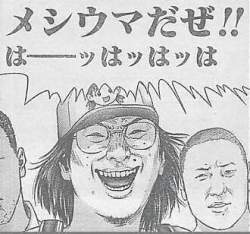 メシウマだぜ!!
は──ッはッはッは